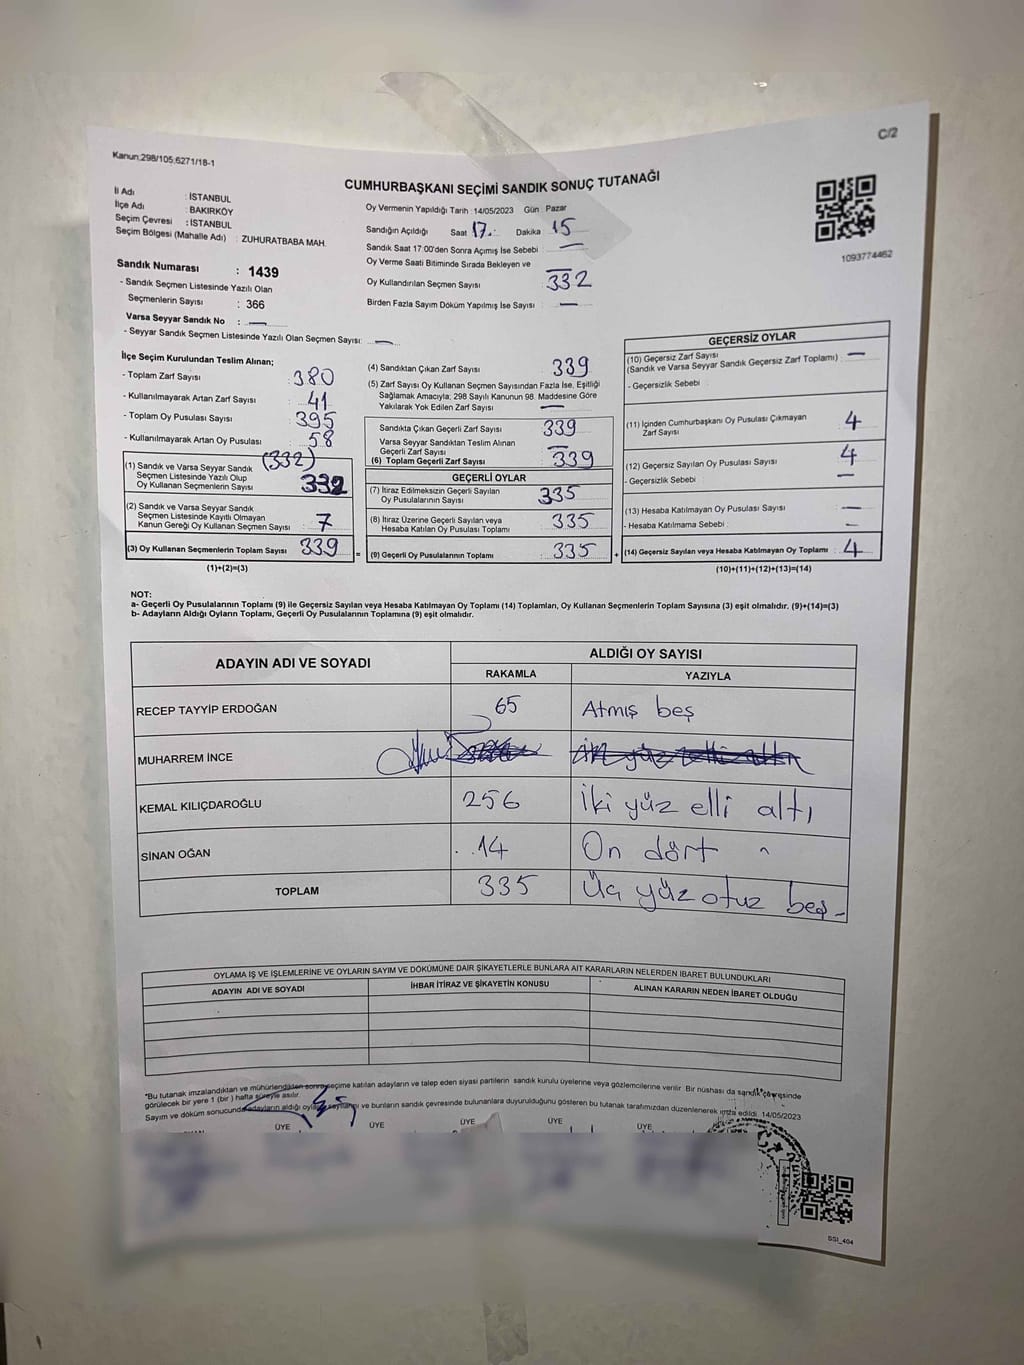 C/2
Kanun;298/105;6271/18-1
CUMHURBAŞKANI SEÇİMİ SANDIK SONUÇ TUTANAĞI
İl Adı : İSTANBUL
İlçe Adı : BAKIRKÖY
Seçim Çevresi : İSTANBUL
Seçim Bölgesi (Mahalle Adı) : ZUHURATBABA MAH.
Oy Vermenin Yapıldığı Tarih :14/05/2023 Gün : Pazar
Sandığın Açıldığı Saat 17. Dakika 15
Sandık Saat 17:00'den Sonra Açımış İse Sebebi : —
Oy Verme Saati Bitiminde Sırada Bekleyen ve —
Oy Kullandırılan Seçmen Sayısı : 332
Birden Fazla Sayım Döküm Yapılmış İse Sayısı : —
1093774462
Sandık Numarası : 1439
- Sandık Seçmen Listesinde Yazılı Olan
Seçmenlerin Sayısı : 366
Varsa Seyyar Sandık No : —
- Seyyar Sandık Seçmen Listesinde Yazılı Olan Seçmen Sayısı: —
İlçe Seçim Kurulundan Teslim Alınan;
- Toplam Zarf Sayısı : 380
- Kullanılmayarak Artan Zarf Sayısı : 41
- Toplam Oy Pusulası Sayısı : 395
- Kullanılmayarak Artan Oy Pusulası : 58
(332)
(1) Sandık ve Varsa Seyyar Sandık
Seçmen Listesinde Yazılı Olup
Oy Kullanan Seçmenlerin Sayısı 332
(2) Sandık ve Varsa Seyyar Sandık
Seçmen Listesinde Kayıtlı Olmayan
Kanun Gereği Oy Kullanan Seçmen Sayısı : 7
(3) Oy Kullanan Seçmenlerin Toplam Sayısı : 339
(1)+(2)=(3)
(4) Sandıktan Çıkan Zarf Sayısı : 339
(5) Zarf Sayısı Oy Kullanan Seçmen Sayısından Fazla İse, Eşitliği
Sağlamak Amacıyla; 298 Sayılı Kanunun 98. Maddesine Göre
Yakılarak Yok Edilen Zarf Sayısı : —
Sandıkta Çıkan Geçerli Zarf Sayısı : 339
Varsa Seyyar Sandıktan Teslim Alınan
Geçerli Zarf Sayısı : —
(6) Toplam Geçerli Zarf Sayısı : 339
GEÇERLİ OYLAR
(7) İtiraz Edilmeksizin Geçerli Sayılan
Oy Pusulalarının Sayısı : 335
(8) İtiraz Üzerine Geçerli Sayılan veya
Hesaba Katılan Oy Pusulası Toplamı : 335
= (9) Geçerli Oy Pusulalarının Toplamı : 335
GEÇERSİZ OYLAR
(10) Geçersiz Zarf Sayısı : —
(Sandık ve Varsa Seyyar Sandık Geçersiz Zarf Toplamı)
- Geçersizlik Sebebi :
(11) İçinden Cumhurbaşkanı Oy Pusulası Çıkmayan
Zarf Sayısı : 4
(12) Geçersiz Sayılan Oy Pusulası Sayısı : 4
- Geçersizlik Sebebi : —
(13) Hesaba Katılmayan Oy Pusulası Sayısı : —
- Hesaba Katılmama Sebebi : —
+ (14) Geçersiz Sayılan veya Hesaba Katılmayan Oy Toplamı : 4
(10)+(11)+(12)+(13)=(14)
NOT:
a- Geçerli Oy Pusulalarının Toplamı (9) ile Geçersiz Sayılan veya Hesaba Katılmayan Oy Toplamı (14) Toplamları, Oy Kullanan Seçmenlerin Toplam Sayısına (3) eşit olmalıdır. (9)+(14)=(3)
b- Adayların Aldığı Oyların Toplamı, Geçerli Oy Pusulalarının Toplamına (9) eşit olmalıdır.
ADAYIN ADI VE SOYADI ALDIĞI OY SAYISI
RAKAMLA YAZIYLA
RECEP TAYYİP ERDOĞAN 65 Atmış beş
MUHARREM İNCE iki yüz elli altı
KEMAL KILIÇDAROĞLU 256 İki yüz elli altı
SİNAN OĞAN 14 On dört
TOPLAM 335 Üç yüz otuz beş
OYLAMA İŞ VE İŞLEMLERİNE VE OYLARIN SAYIM VE DÖKÜMÜNE DAİR ŞİKAYETLERLE BUNLARA AİT KARARLARIN NELERDEN İBARET BULUNDUKLARI
ADAYIN ADI VE SOYADI İHBAR İTİRAZ VE ŞİKAYETİN KONUSU ALINAN KARARIN NEDEN İBARET OLDUĞU
*Bu tutanak imzalandıktan ve mühürlendikten sonra seçime katılan adayların ve talep eden siyasi partilerin sandık kurulu üyelerine veya gözlemcilerine verilir. Bir nüshası da sandık çevresinde
görülecek bir yere 1 (bir ) hafta süreyle asılır.
Sayım ve döküm sonucunda adayların aldığı oyların sayılarını ve bunların sandık çevresinde bulunanlara duyurulduğunu gösteren bu tutanak tarafımızdan düzenlenerek imza edildi. 14/05/2023
ÜYE ÜYE ÜYE ÜYE ÜYE
SSI_404